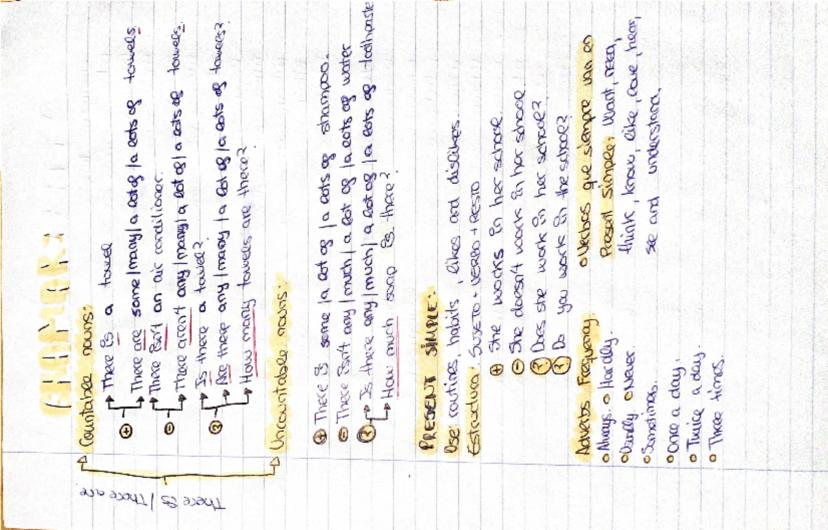 GRAMMAR:
There is / There are
Countable nouns:
There is a towel
⊕ There are some/many/a lot of/a lots of towels.
There isn't an air conditioner.
⊖ There aren't any/many/a lot of/a lots of towels.
Is there a towel?
? Are there any/many/a lot of/a lots of towels?
How many towels are there?
Uncountable nouns:
⊕ There is some/a lot of/a lots of shampoo.
⊖ There isn't any/much/a lot of/a lots of water
? Is there any/much/a lot of/a lots of toothpaste
How much soap is there?
PRESENT SIMPLE:
Use: routines, habits, likes and dislikes.
Estructura: SUJETO + VERBO + RESTO
⊕ She works in her school.
⊖ She doesn't work in her school
? Does she work in her school?
? Do you work in the school?
Adverbs Frequency:
• Always. • Hardly.
• Usually • Never.
• Sometimes.
• Once a day.
• Twice a day.
• Three times.
• Verbos que siempre van en
Present simple: Want, need,
think, know, like, love, hear,
see and understand.